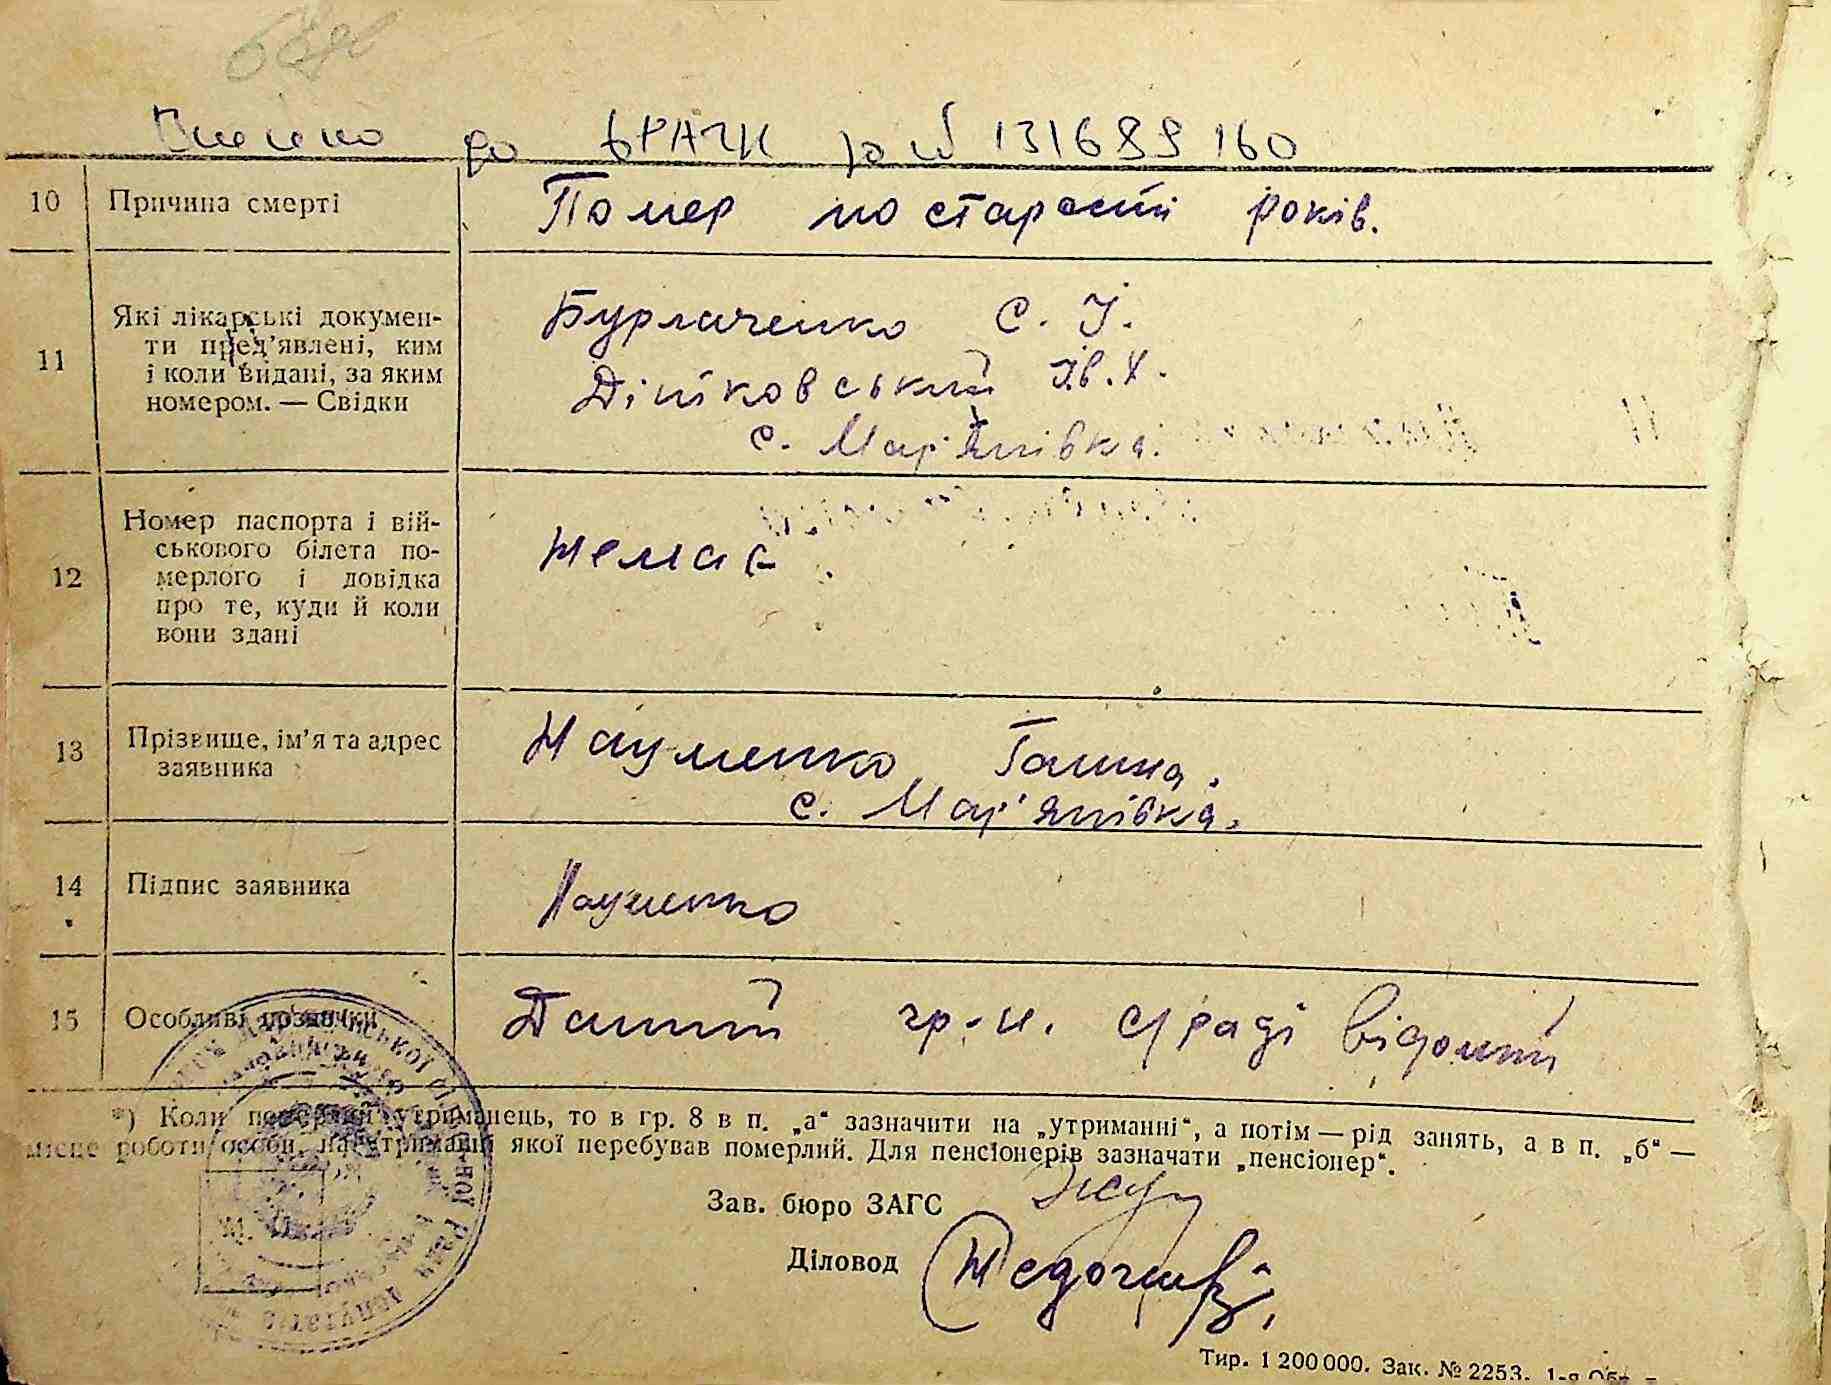 Внесено до ДРАЦС за № 131699160
10 Причина смерті
Помер по старості років.
11 Які лікарські докумен-
ти пред’явлені, ким
і коли видані, за яким
номером. — Свідки
Бурлаченко С. І.
Дітковський Ів. Х.
с. Мар'янівка.
12 Номер паспорта і вій-
ськового білета по-
мерлого і довідка
про те, куди й коли
вони здані
немає
13 Прізвище, ім’я та адрес
заявника
Науменко Ганна.
с. Мар'янівка.
14 Підпис заявника
Науменко
15 Особливі позначки
Даний гр-н. с/раді відомий
*) Коли померлий утриманець, то в гр. 8 в п. „а“ зазначити на „утриманні“, а потім — рід занять, а в п. „б“ —
місце роботи особи, на утриманні якої перебував померлий. Для пенсіонерів зазначати „пенсіонер“.
Зав. бюро ЗАГС
Діловод
Тир. 1 200 000. Зак. № 2253. 1-я